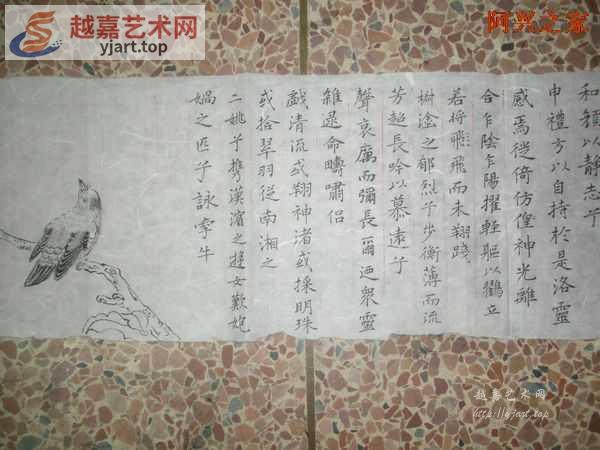 越嘉艺术网
yjart.top
阿兴之家
和顏以静志兮
申禮方以自持於是洛靈
感焉徙倚仿偟神光離
合乍陰乍陽擢輕軀以鶴立
若将飛飛而未翔踐
椒塗之郁烈兮步衡薄而流
芳超長吟以慕遠兮
聲哀厲而彌長爾迺衆靈
雜遝命疇嘯侣
戯清流或翔神渚或採明珠
或拾翠羽從南湘之
二姚兮携漢濱之遊女歎匏
媧之匹兮詠牽牛
越嘉艺术网
http://yjart.top